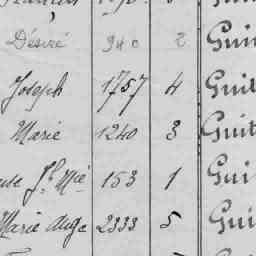 Désiré 940 2 Gui
Joseph 1757 4 Guit
Marie 1240 3 Guit
Mie 153 1 Gui
Marie Ange 2333 5 Gui